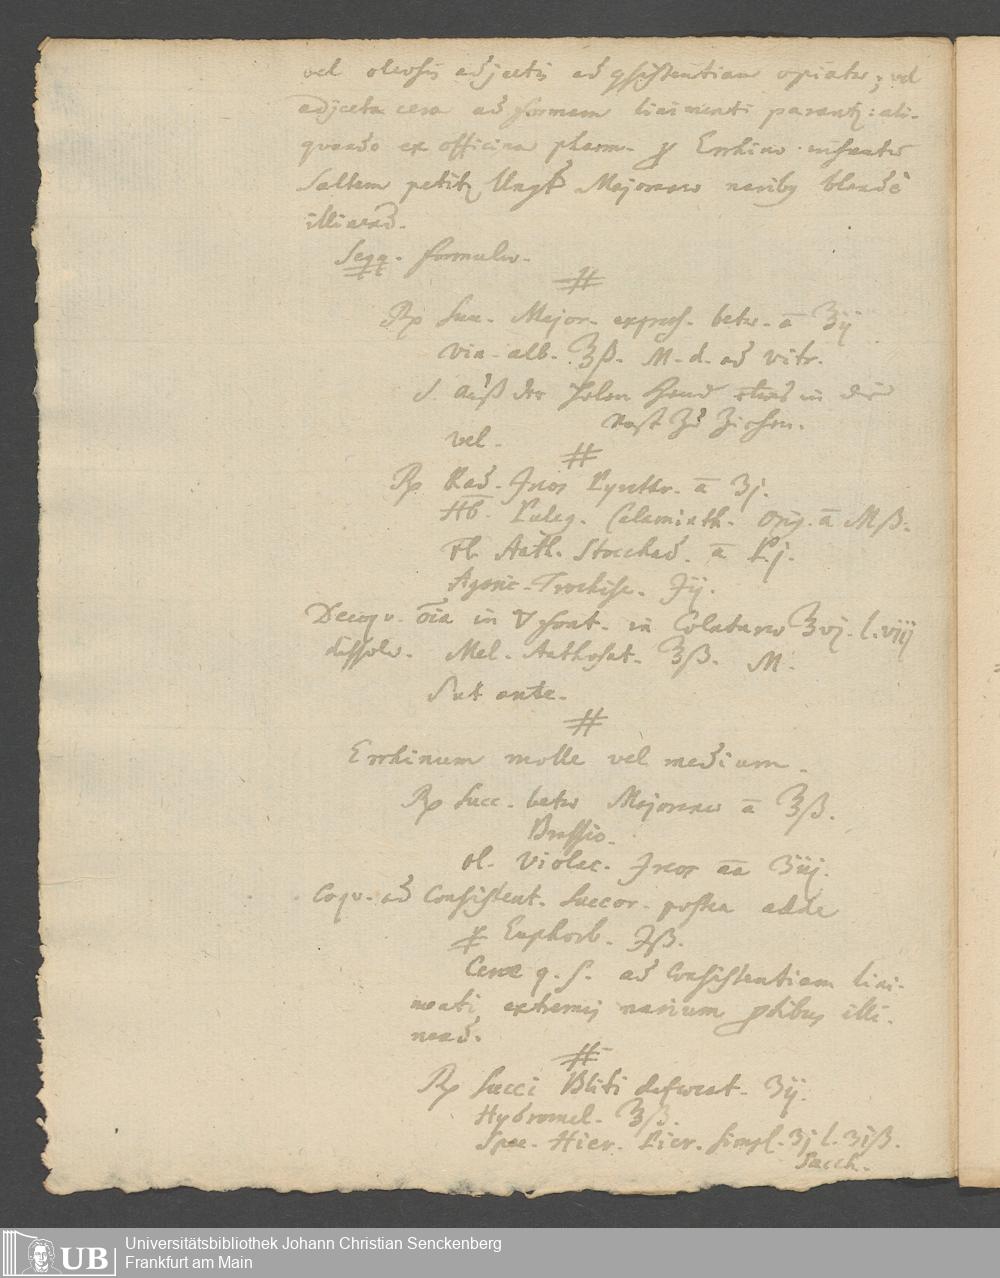 vel oleosis adjectis ad consistentiam opiatæ; vel
adjecta cera ad formam linimenti parantur: ali-
quando ex officina pharm. pro Errhino
saltem petitur Ungt Majoranæ naribus blandè
illinend.
Seqq. formulæ.
#
Rp Succ. Major. express. betæ. ā ʒij
Vin. alb. ℥ß. M. d. ad vitr.
S. Auß der holen Hand etwas in die
Naß zu ziehen.
vel.
#
Rp Rad. Ireos Pyrethr. ā ʒj.
Hb. Puleg. Calaminth. Orig. ā Mß.
Fl. Anth. Stoechad. ā P.j.
Agaric. Trochisc. ℈ij.
Decoqu. oia in ▽ font. in Colaturæ ℥vj. l. viij
dissolv. Mel. Anthosat. ℥ß. M.
Sut ante.
#
Errhinum molle vel medium.
Rp Succ. betæ Majoranæ ā ℥ß.
Brassic.
ol. Violac. Ireos āā ʒiij.
Coqu. ad Consistent. Succor. postea adde
Euphorb. ℈ß.
Ceræ q. s. ad Consistentiam lini-
menti extremis narium ptibus illi-
nend.
#
Rp Succi Bliti defoecat. ʒij.
Hydromel. ℥ß.
Spec. Hier. Picr. simpl. ʒj l. ʒiß.
Sacch.
UB
Universitätsbibliothek Johann Christian Senckenberg
Frankfurt am Main